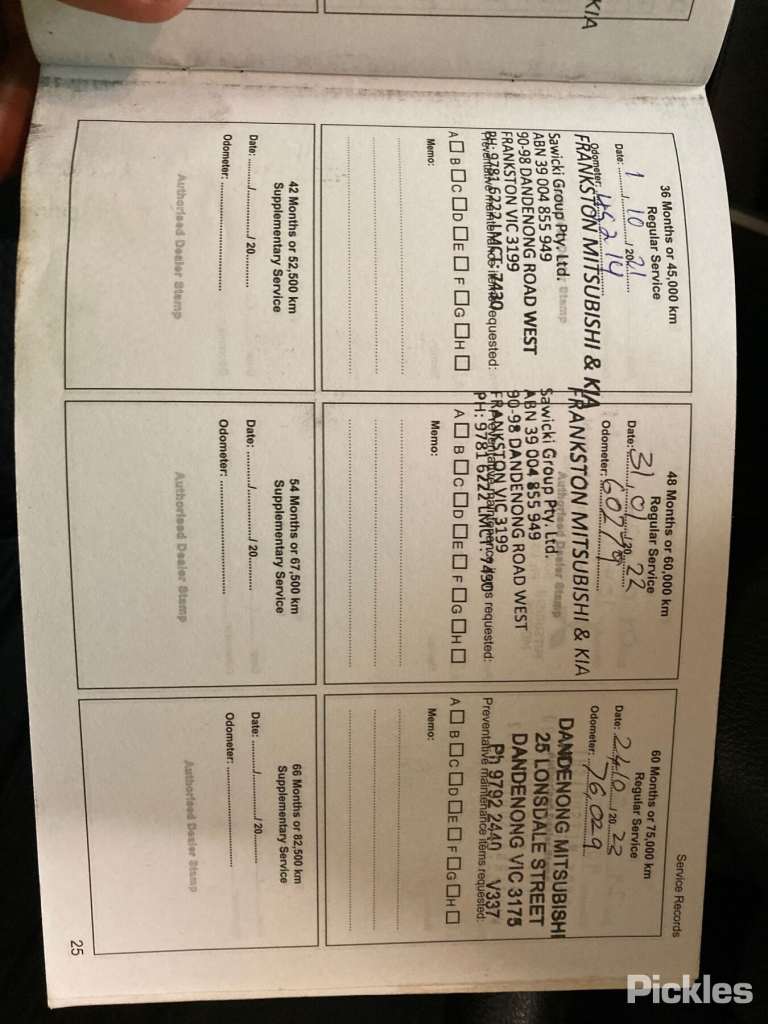 KIA
Service Records
36 Months or 45,000 km
Regular Service
Date: 1 / 10 / 2021
Odometer: 45214
FRANKSTON MITSUBISHI & KIA
Sawicki Group Pty. Ltd.
ABN 39 004 855 949
90-98 DANDENONG ROAD WEST
FRANKSTON VIC 3199
PH: 9781 6222 LMCT: 7430
Preventative maintenance items requested:
A B C D E F G H
Memo:
48 Months or 60,000 km
Regular Service
Date: 31/01/2022
Odometer: 60279
FRANKSTON MITSUBISHI & KIA
Authorised Dealer Stamp
Sawicki Group Pty. Ltd.
ABN 39 004 855 949
90-98 DANDENONG ROAD WEST
FRANKSTON VIC 3199
PH: 9781 6222 LMCT: 7430
Preventative maintenance items requested:
A B C D E F G H
Memo:
60 Months or 75,000 km
Regular Service
Odometer: 76,029
DANDENONG MITSUBISHI
25 LONSDALE STREET
DANDENONG VIC 3175
Ph 9792 2440 V337
Preventative maintenance items requested:
A B C D E F G H
Memo:
42 Months or 52,500 km
Supplementary Service
Date: ........./........./ 20.........
Odometer: ..............................
Authorised Dealer Stamp
54 Months or 67,500 km
Supplementary Service
Date: ........./........./ 20.........
Odometer: ..............................
Authorised Dealer Stamp
66 Months or 82,500 km
Supplementary Service
Date: ........./........./ 20.........
Odometer: ..............................
Authorised Dealer Stamp
25
Pickles